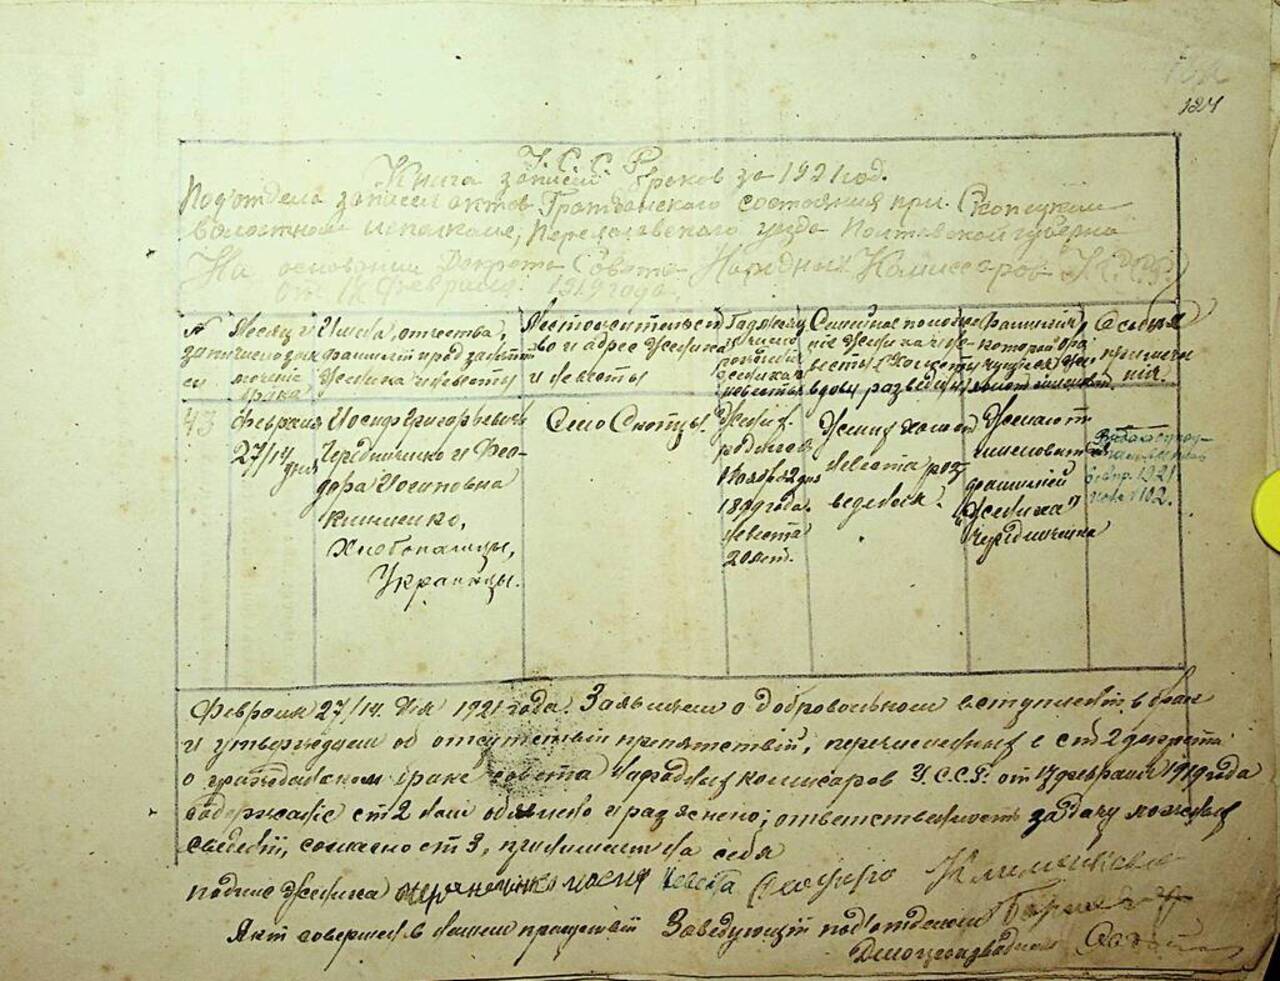 124
У. С. С. Р.
Книга записей браков за 1921 год.
Подотдела записей актов Гражданского состояния при Скопецком
волостном исполкоме, Переяславского уезда Полтавской губернии
На основании Декрета Совета Народных Комиссаров У.С.С.Р.
от 17 февраля 1919 года.
№ записи
Месяц и число заключение брака
Имена, отчества, фамилии и род занятий жениха и невесты
Местожительство и адрес жениха и невесты
Год месяц и число рождения жениха и невесты
Семейное положение жениха и невесты холост вдов разведен
Фамилия, которой
Особыя примечания.
43
Февраля
27/14 дня
Иосиф Григорьевич
Чередниченко и Фео-
дора Иосиповна
Клименко,
Хлебопашцы,
Украинцы.
Село Скопцы.
Жених
родился
Ноября 2 дня
1899 года.
невеста
20 лет.
Жених холост
невеста раз-
ведена.
Желают
именоваться
фамилией
"Жениха"
Чередниченко
1921
Февраля 27/14. дня 1921 года. Заявляем о добровольном вступлении в брак
и утверждаем об отсутствии препятствий, перечисленных в ст 2 декрета
о гражданском браке совета народных комисаров У.С.С.Р. от 17 февраля 1919 года
содержание ст 2 нам объявлено и разяснено; ответственность за дачу ложных
сведений, согласно ст 3, принимаем на себя
подпис Жениха Иосиф Невеста Феодора Клименкова
Акт совершен в нашем присутствии Заведующий подотделом
Делопроизводитель